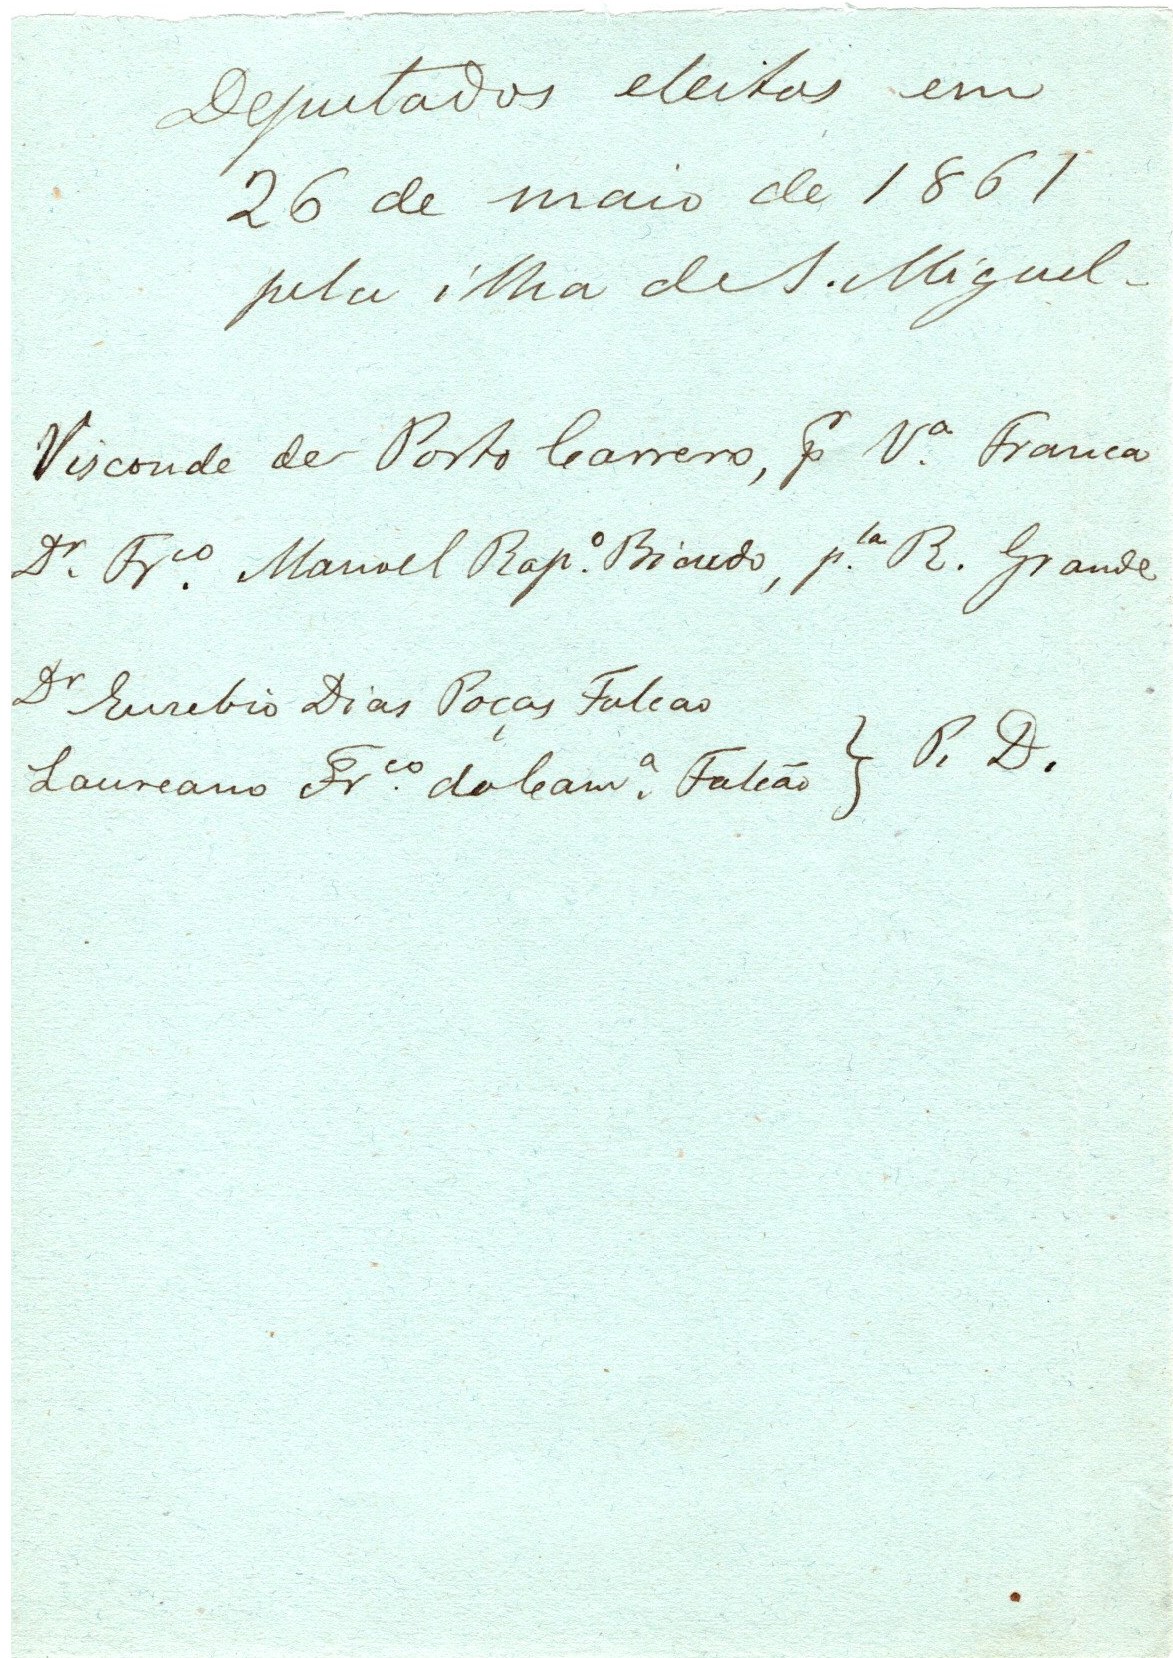 Deputados eleitos em
26 de maio de 1861
pela ilha de S. Miguel -
Visconde de Porto Carrero, pr Vª. Franca
Dr. Frco. Manoel Rapº. Bicudo, p.la R. Grande
Dr Eusebio Dias Poças Falcao
Laureano Frco. da Camª. Falcão } P. D.